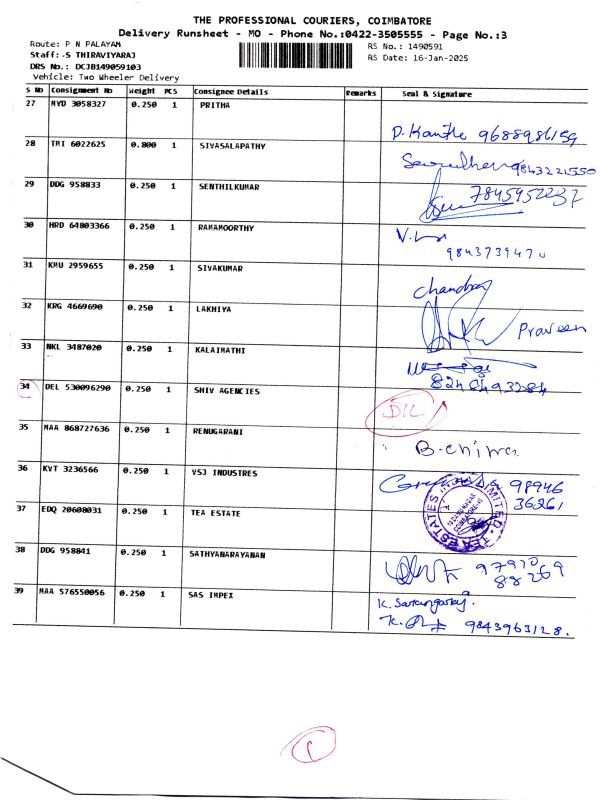 THE PROFESSIONAL COURIERS, COIMBATORE
Delivery Runsheet - MO - Phone No.:0422-3505555 - Page No.:3
Route: P N PALAYAM
RS No.: 1490591
Staff: S THIRAVIYARAJ
RS Date: 16-Jan-2025
DRS No.: DCJB149059103
Vehicle: Two Wheeler Delivery
S No Consignment No Weight PCS Consignee Details Remarks Seal & Signature
27 MYD 3058327 0.250 1 PRITHA
D. Kantha 9688986159
28 TMI 6022625 0.800 1 SIVASALAPATHY
9843221550
29 DDG 958833 0.250 1 SENTHILKUMAR
7845952237
30 HRD 64803366 0.250 1 RAMAMOORTHY
9843739470
31 KMU 2959655 0.250 1 SIVAKUMAR
32 KRG 4669690 0.250 1 LAKHIYA
Praveen
33 NKL 3487020 0.250 1 KALAIMATHI
8248493284
34 DEL 530096290 0.250 1 SHIV AGENCIES
DIL
35 MAA 868727636 0.250 1 RENUGARANI
36 KVT 3236566 0.250 1 VSJ INDUSTRES
98946
36261
37 EDQ 20608031 0.250 1 TEA ESTATE
38 DDG 958841 0.250 1 SATHYANARAYANAN
97910
88269
39 MAA 576550056 0.250 1 SAS IMPEX
9843963128.